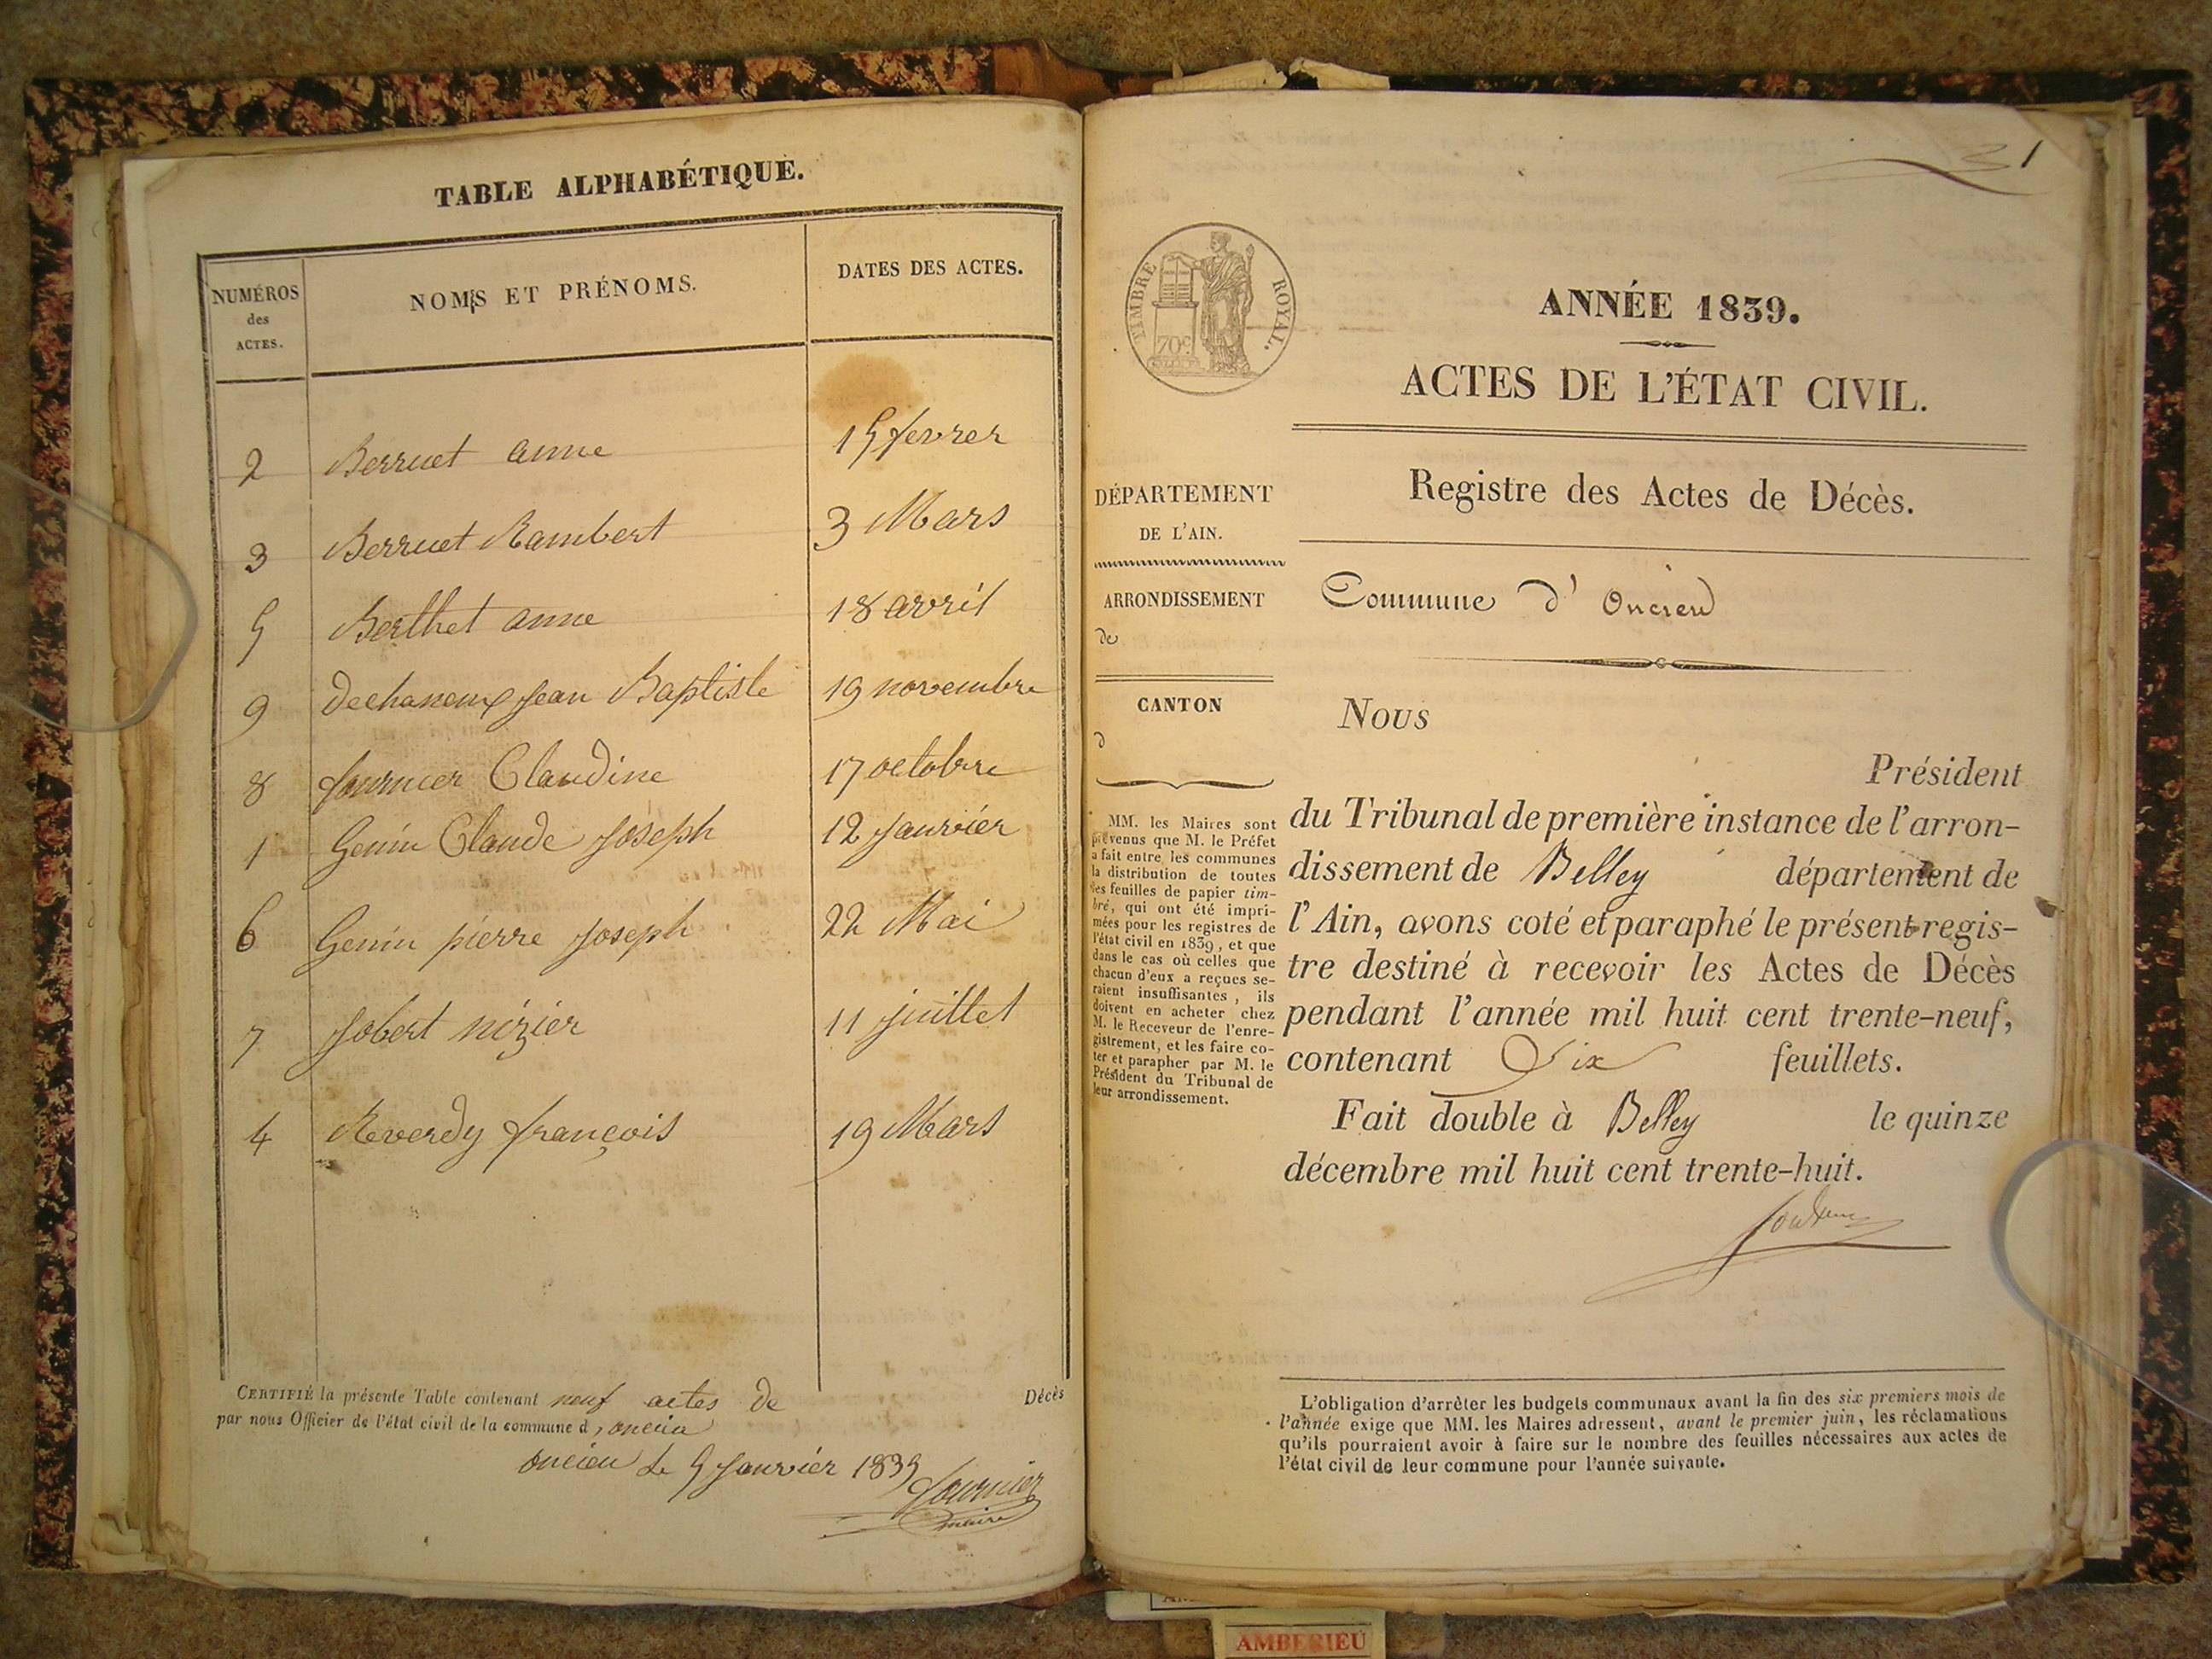 TABLE ALPHABÉTIQUE.
NUMÉROS des ACTES.
NOMS ET PRÉNOMS.
DATES DES ACTES.
2 Berruet anne 15 fevrer
3 Berruet Rambert 3 Mars
5 Berthet anne 18 avril
9 dechaneux Jean Baptiste 19 novembre
8 fournier Claudine 17 octobre
1 Genin Claude Joseph 12 Janvier
6 Genin pierre Joseph 22 Mai
7 Jobert nizier 11 juillet
4 Reverdy françois 19 Mars
CERTIFIÉ la présente Table contenant neuf actes de Décès
par nous Officier de l'état civil de la commune d'oncieu
oncieu Le 5 Janvier 1839
fournier
maire
1
TIMBRE ROYAL.
70c
ANNÉE 1839.
ACTES DE L'ÉTAT CIVIL.
DÉPARTEMENT
DE L'AIN.
ARRONDISSEMENT
de
CANTON
d
MM. les Maires sont
prévenus que M. le Préfet
a fait entre les communes
la distribution de toutes
les feuilles de papier tim-
bré, qui ont été impri-
mées pour les registres de
l'état civil en 1839, et que
dans le cas où celles que
chacun d'eux a reçues se-
raient insuffisantes, ils
doivent en acheter chez
M. le Receveur de l'enre-
gistrement, et les faire co-
ter et parapher par M. le
Président du Tribunal de
leur arrondissement.
Registre des Actes de Décès.
Commune d' Oncieu
Nous
Président
du Tribunal de première instance de l'arron-
dissement de Belley département de
l'Ain, avons coté et paraphé le présent regis-
tre destiné à recevoir les Actes de Décès
pendant l'année mil huit cent trente-neuf,
contenant Six feuillets.
Fait double à Belley le quinze
décembre mil huit cent trente-huit.
L'obligation d'arrêter les budgets communaux avant la fin des six premiers mois de
l'année exige que MM. les Maires adressent, avant le premier juin, les réclamations
qu'ils pourraient avoir à faire sur le nombre des feuilles nécessaires aux actes de
l'état civil de leur commune pour l'année suivante.
AMBERIEU